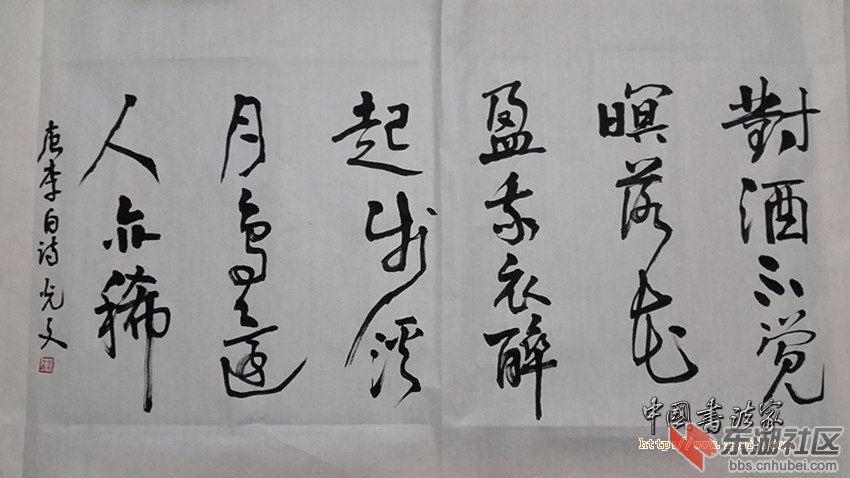 對酒不觉
暝落花
盈我衣醉
起步溪
月鳥還
人亦稀
唐李白诗 光文
中國書法家
东湖社区
bbs.cnhubei.com